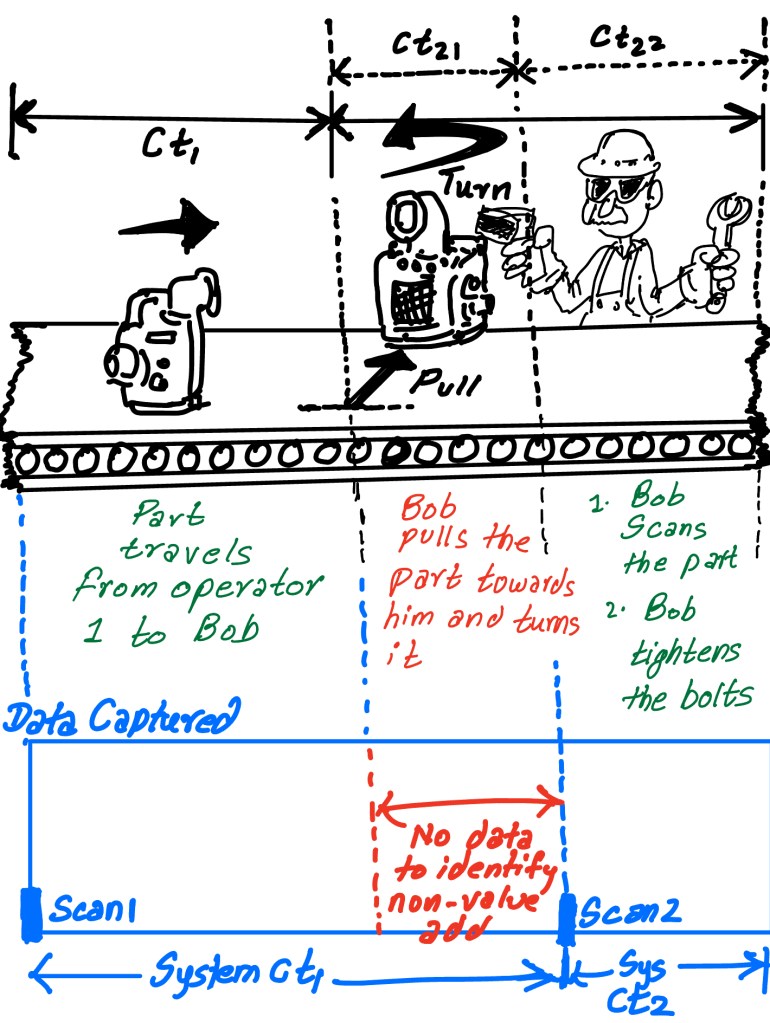 Ct21
Ct22
Ct1
Turn
Pull
Part
travels
from operator
1 to Bob
Bob
pulls the
part towards
him and turns
it
1. Bob
Scans
the part
2. Bob
tightens
the bolts
Data Captured
No data
to identify
non-value
add
Scan1
Scan2
System Ct1
Sys
Ct2